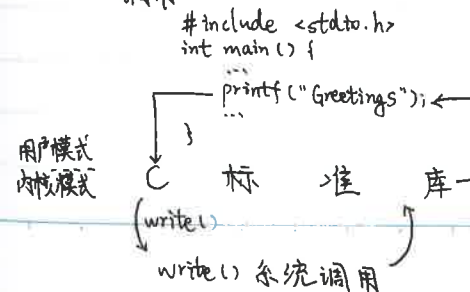 #include <stdio.h>
int main() {
...
printf("Greetings");
...
}
用户模式
内核模式
C 标准库
write()
write() 系统调用